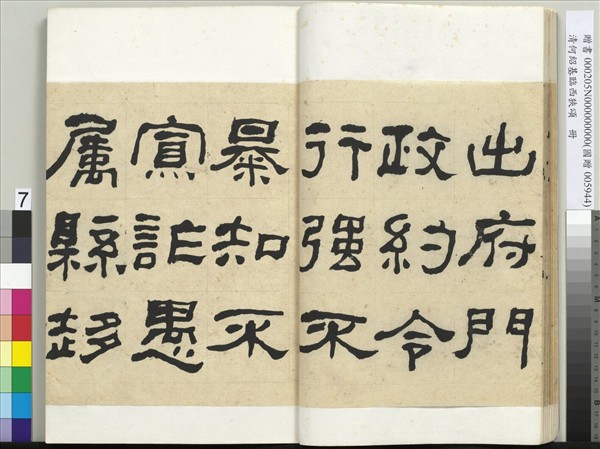 出府門
政約令
行强不
暴知不
寡詐愚
屬縣趍
贈書 000205N000000000(國贈 005944)
清何紹基臨西狹頌 冊
7